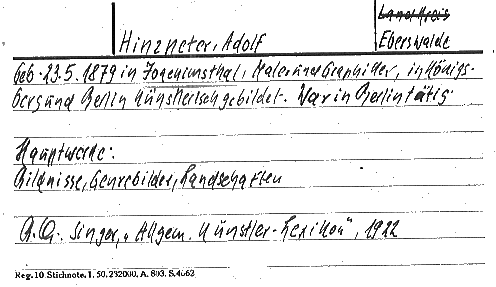 Landkreis
Hinzneter, Adolf
Eberswalde
Geb. 23.5.1879 in Joachimsthal, Maler und Graphiker, in Königs-
berg und Berlin künstlerisch gebildet. War in Berlin tätig.
Hauptwerke:
Bildnisse, Genrebilder, Landschaften
Singer, „Allgem. Künstler-Lexikon", 1922
Reg. 10 Stichnote. 1. 50. 232000. A. 803. S. 4663